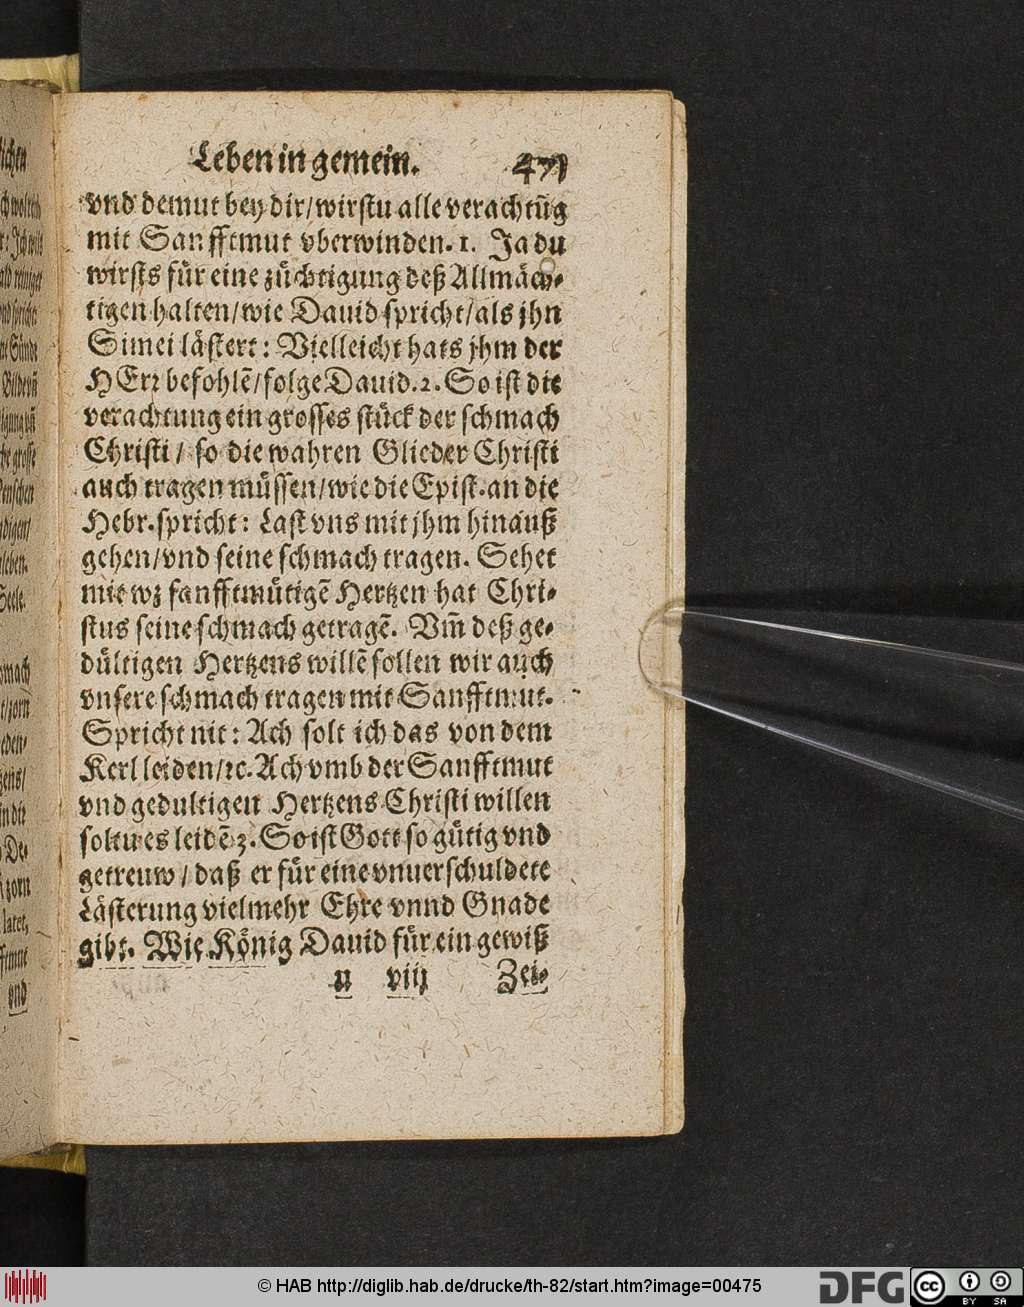 Leben in gemein. 471
vnd demut bey dir/wirstu alle verachtũg
mit Sanfftmut vberwinden. 1. Ja du
wirsts für eine züchtigung deß Allmäch-
tigen halten/wie Dauid spricht/als jhn
Simei lästert: Vielleicht hats jhm der
HErr befohlẽ/folge Dauid. 2. So ist die
verachtung ein grosses stück der schmach
Christi/ so die wahren Glieder Christi
auch tragen müssen/wie die Epist. an die
Hebr. spricht: Last vns mit jhm hinauß
gehen/vnd seine schmach tragen. Sehet
mit wz sanfftmütigẽ Hertzen hat Chri-
stus seine schmach getragẽ. Vm̃ deß ge-
dültigen Hertzens willẽ sollen wir auch
vnsere schmach tragen mit Sanfftmut.
Spricht nit: Ach solt ich das von dem
Kerl leiden/ꝛc. Ach vmb der Sanfftmut
vnd gedultigen Hertzens Christi willen
soltu es leidẽ 3. So ist Gott so gütig vnd
getreuw/ daß er für eine vnuerschuldete
Lästerung vielmehr Ehre vnnd Gnade
gibt. Wie König Dauid für ein gewiß
u viij Zei-
ichen
zorn
eden-
in die
De-
zorn
vnd
© HAB http://diglib.hab.de/drucke/th-82/start.htm?image=00475
DFG
cc BY SA